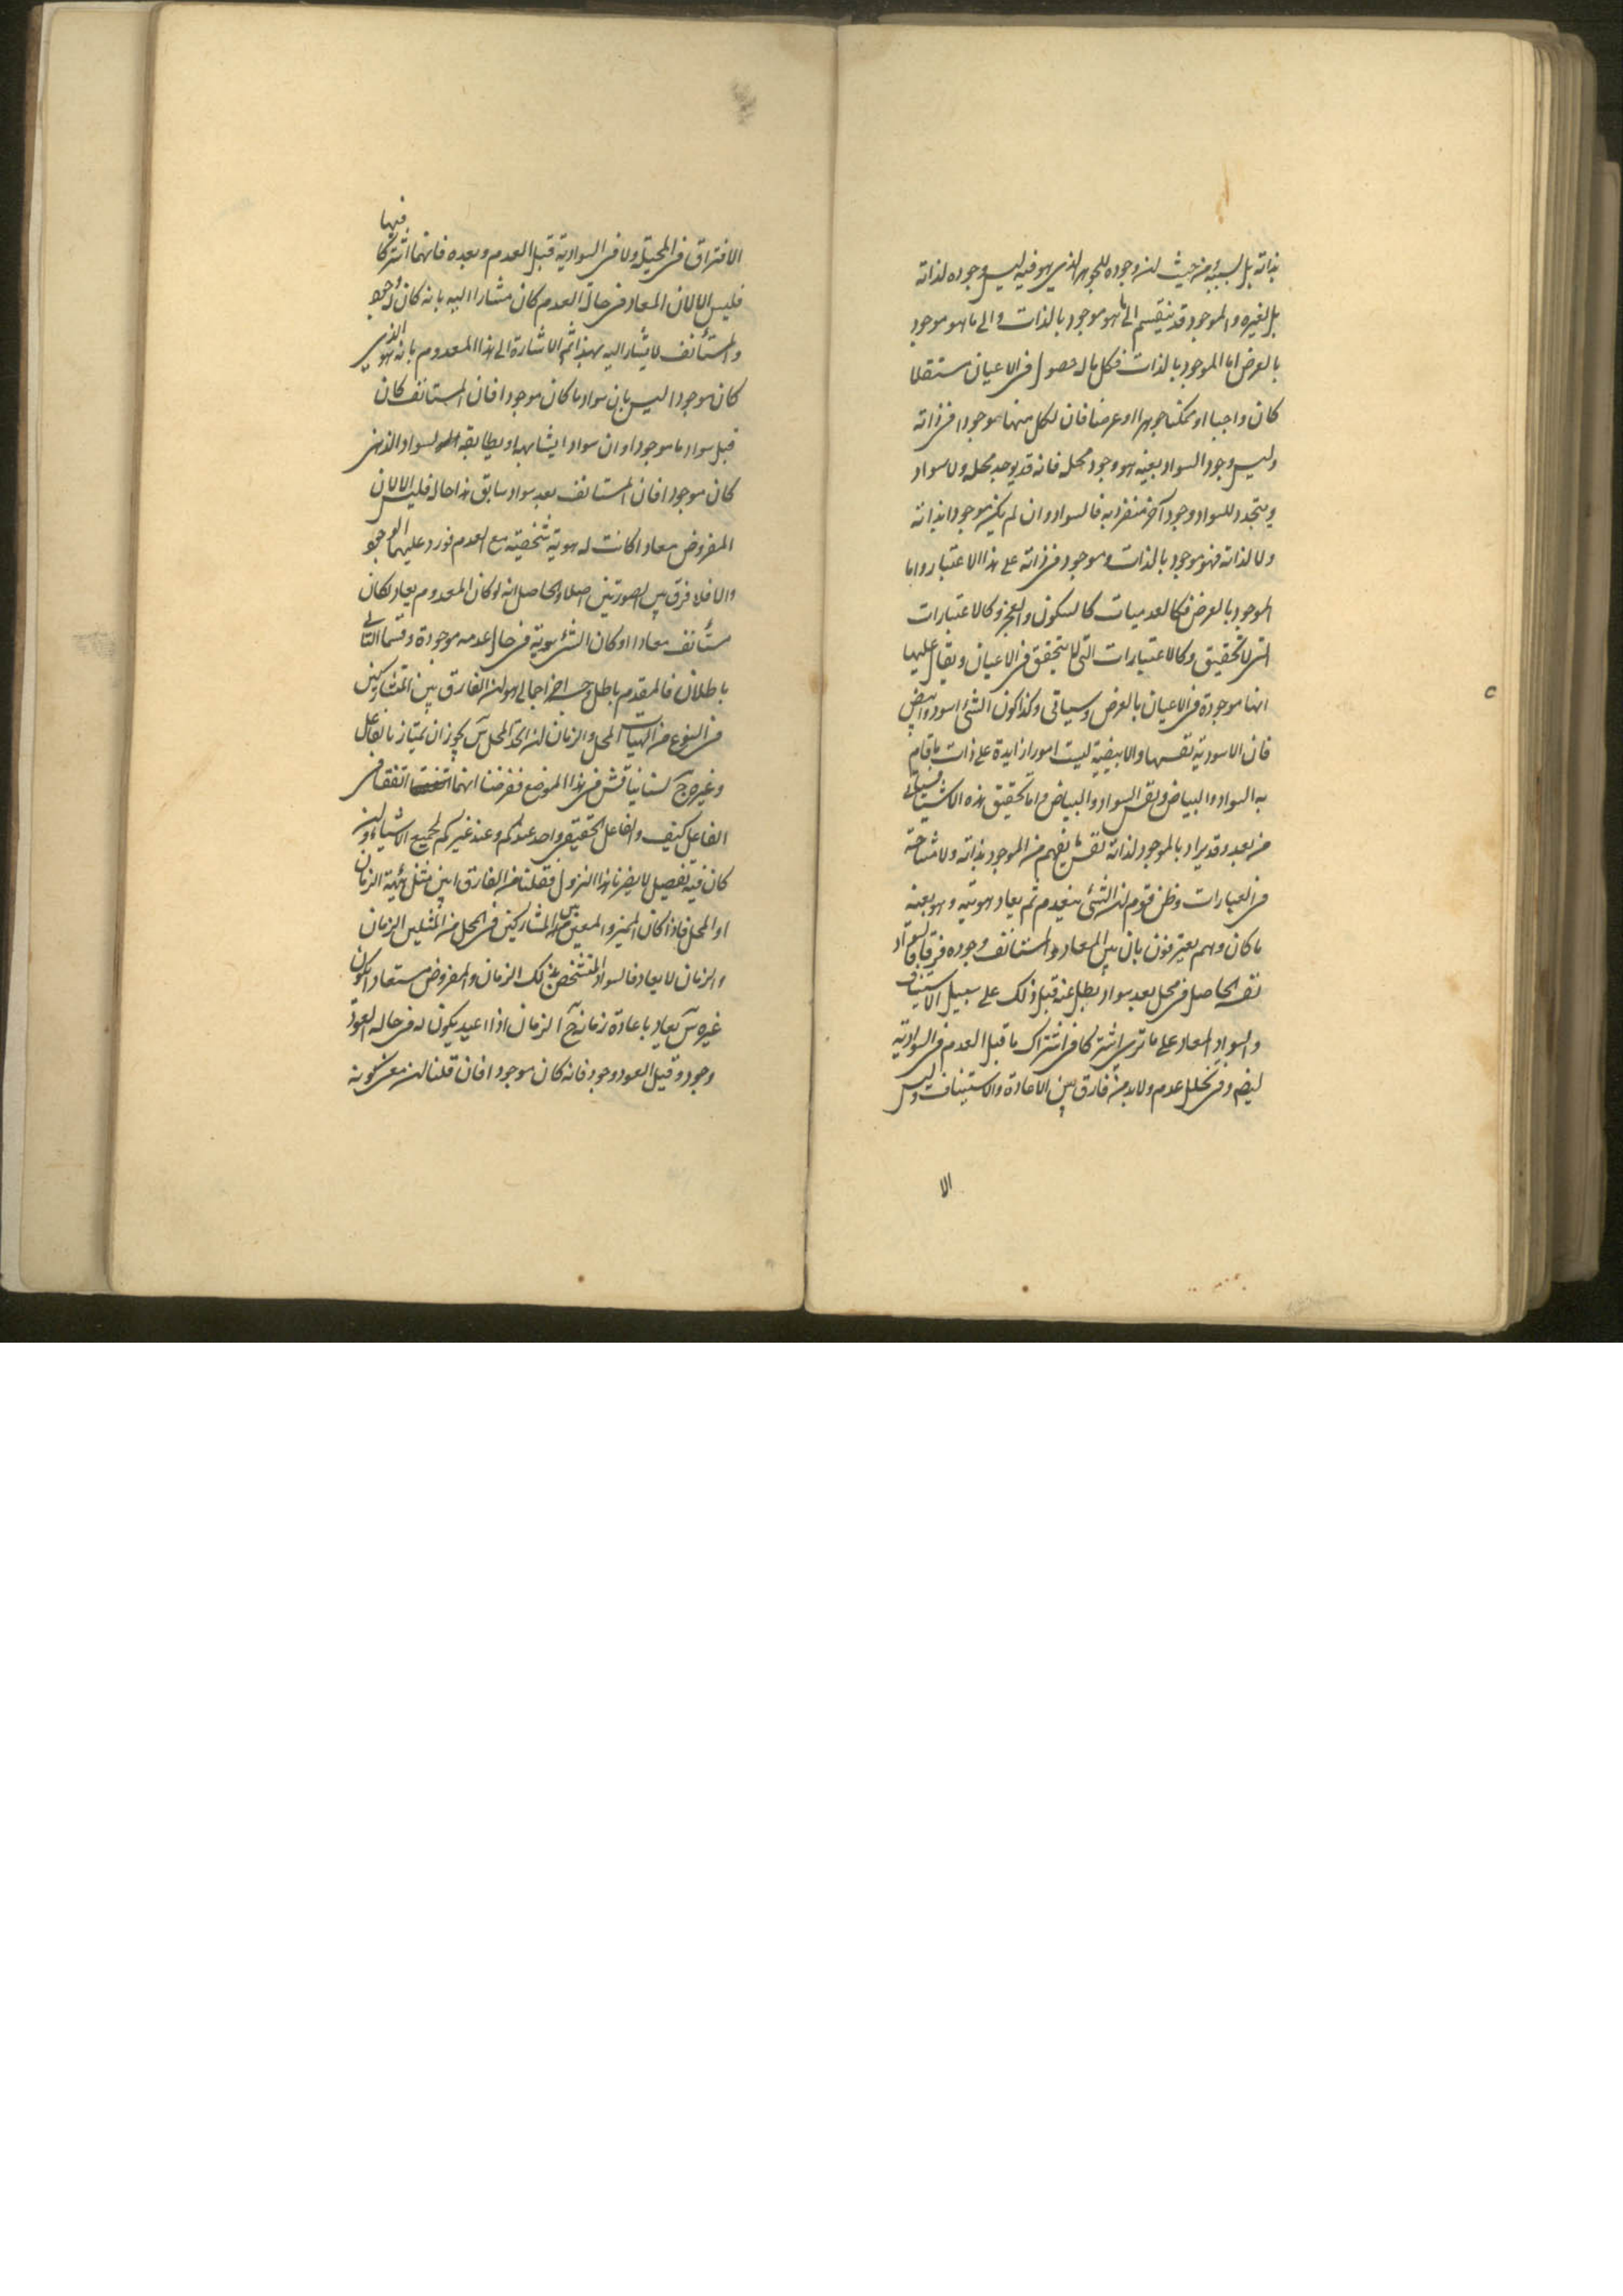 بذاته بل لسببه و من حيث ان وجوده للجوهر الذي هو فيه ليس وجوده لذاته
بل لغيره والموجود قد ينقسم الى ما هو موجود بالذات والى ما هو موجود
بالعرض اما الموجود بالذات فكل ما له حصول في الاعيان مستقلا
كان واجبا او ممكنا جوهرا او عرضا فان لكل منها موجودا في ذاته
وليس وجود السواد بعينه هو وجود محله فانه قد يوجد محله ولا سواد
ويتجدد للسواد وجود آخر منفرد به فالسواد وان لم يكن موجودا بذاته
ولا لذاته فهو موجود بالذات وموجود في ذاته على هذا الاعتبار واما
الموجود بالعرض فكالعدميات كالسكون والعجز وكالاعتبارات
التي لا تحقيق وكالاعتبارات التي لا تتحقق في الاعيان ويقال عليها
انها موجودة في الاعيان بالعرض وسياتي وكذا كون الشئ اسود وابيض
فان الاسودية نفسها والابيضية ليست امورا زايدة على ذات ما قام
به السواد والبياض ونفس السواد والبياض واما تحقيق هذه الاشياء فسياتي
من بعد وقد يراد بالموجود لذاته نفس ما يفهم من الموجود بذاته ولا مشاحة
في العبارات وظن قوم ان الشئ ينعدم ثم يعاد هويته وهو بعينه
ما كان وهم يعترفون بان بين المعاد والمستانف وجوده فرقا فالسواد
نفسه الحاصل في محل بعد سواد بطل عنه قبل ذلك على سبيل الاستيناف
والسواد المعاد على ما ترى اشتركا في اشتراك ما قبل العدم في السوادية
ايضم وفي تخلل عدم ولا بد من فارق بين الاعادة والاستيناف وليس
الا
فيها
الافتراق في المحلية ولا في السوادية قبل العدم وبعده فانهما اشتركا
فليس الا لان المعاد في حال العدم كان مشارا اليه بانه كان له وجود
والمستأنف لا يشار اليه بهذا ثم الاشارة الى هذا المعدوم بانه هو الذي
كان موجودا ليس بان سوادا ما كان موجودا فان المستانف كان
قبل سواد ما موجودا او ان سوادا يشابهه او يطابقه السواد الذهني
كان موجودا فان المستانف بعد سواد سابق هذا حاله فليس الا لان
المفروض معادا كانت له هوية شخصية مع العدم فورد عليها الوجود
والا فلا فرق بين الصورتين اصلا والحاصل انه لو كان المعدوم يعاد لكان
مستأنف معادا او كان الشئ هوية في حال عدمه موجودة وقسما التالي
باطلان فالمقدم باطل وجه اخر اجمالي هو ان الفارق بين المتشاركين
في النوع من الهيئات المحل والزمان ان اتحد المحل س يجوز ان يمتاز بالفاعل
وغيره ج لسنا نناقش في هذا الموضع ففرضنا انهما اتفقا في
الفاعل كيف والفاعل الحقيقي واحد عندكم وعند غيركم لجميع الاشياء وان
كان فيه تفصيل لا يضرنا هذا النزول فقلنا من الفارق بين مثل هيئة الزمان
او المحل فاذا كان المميز والمعين بين المتشاركين في المحل من المثلين الزمان
والزمان لا يعاد فالسواد المتشخص بذلك الزمان والمفروض مستعادا يكون
غيره س يعاد باعادة زمانه ج الزمان اذا اعيد يكون له في حالة العود
وجود وقبل العود وجود فانه كان موجودا فان قلنا ان معنى كونه